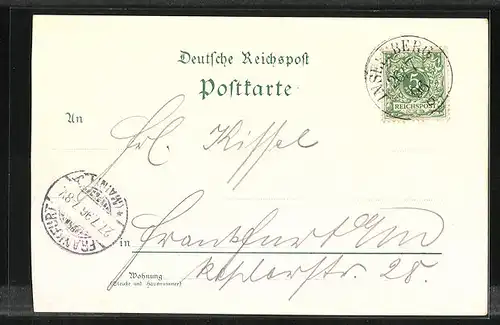 Deutsche Reichspost
Postkarte
INSELSBERG
5
REICHSPOST
An
Frl. Kissel
FRANKFURT
(MAIN)
27.7.96.
in Frankfurt a/m
Wohnung
(Straße und Hausnummer)
Keplerstr. 28.